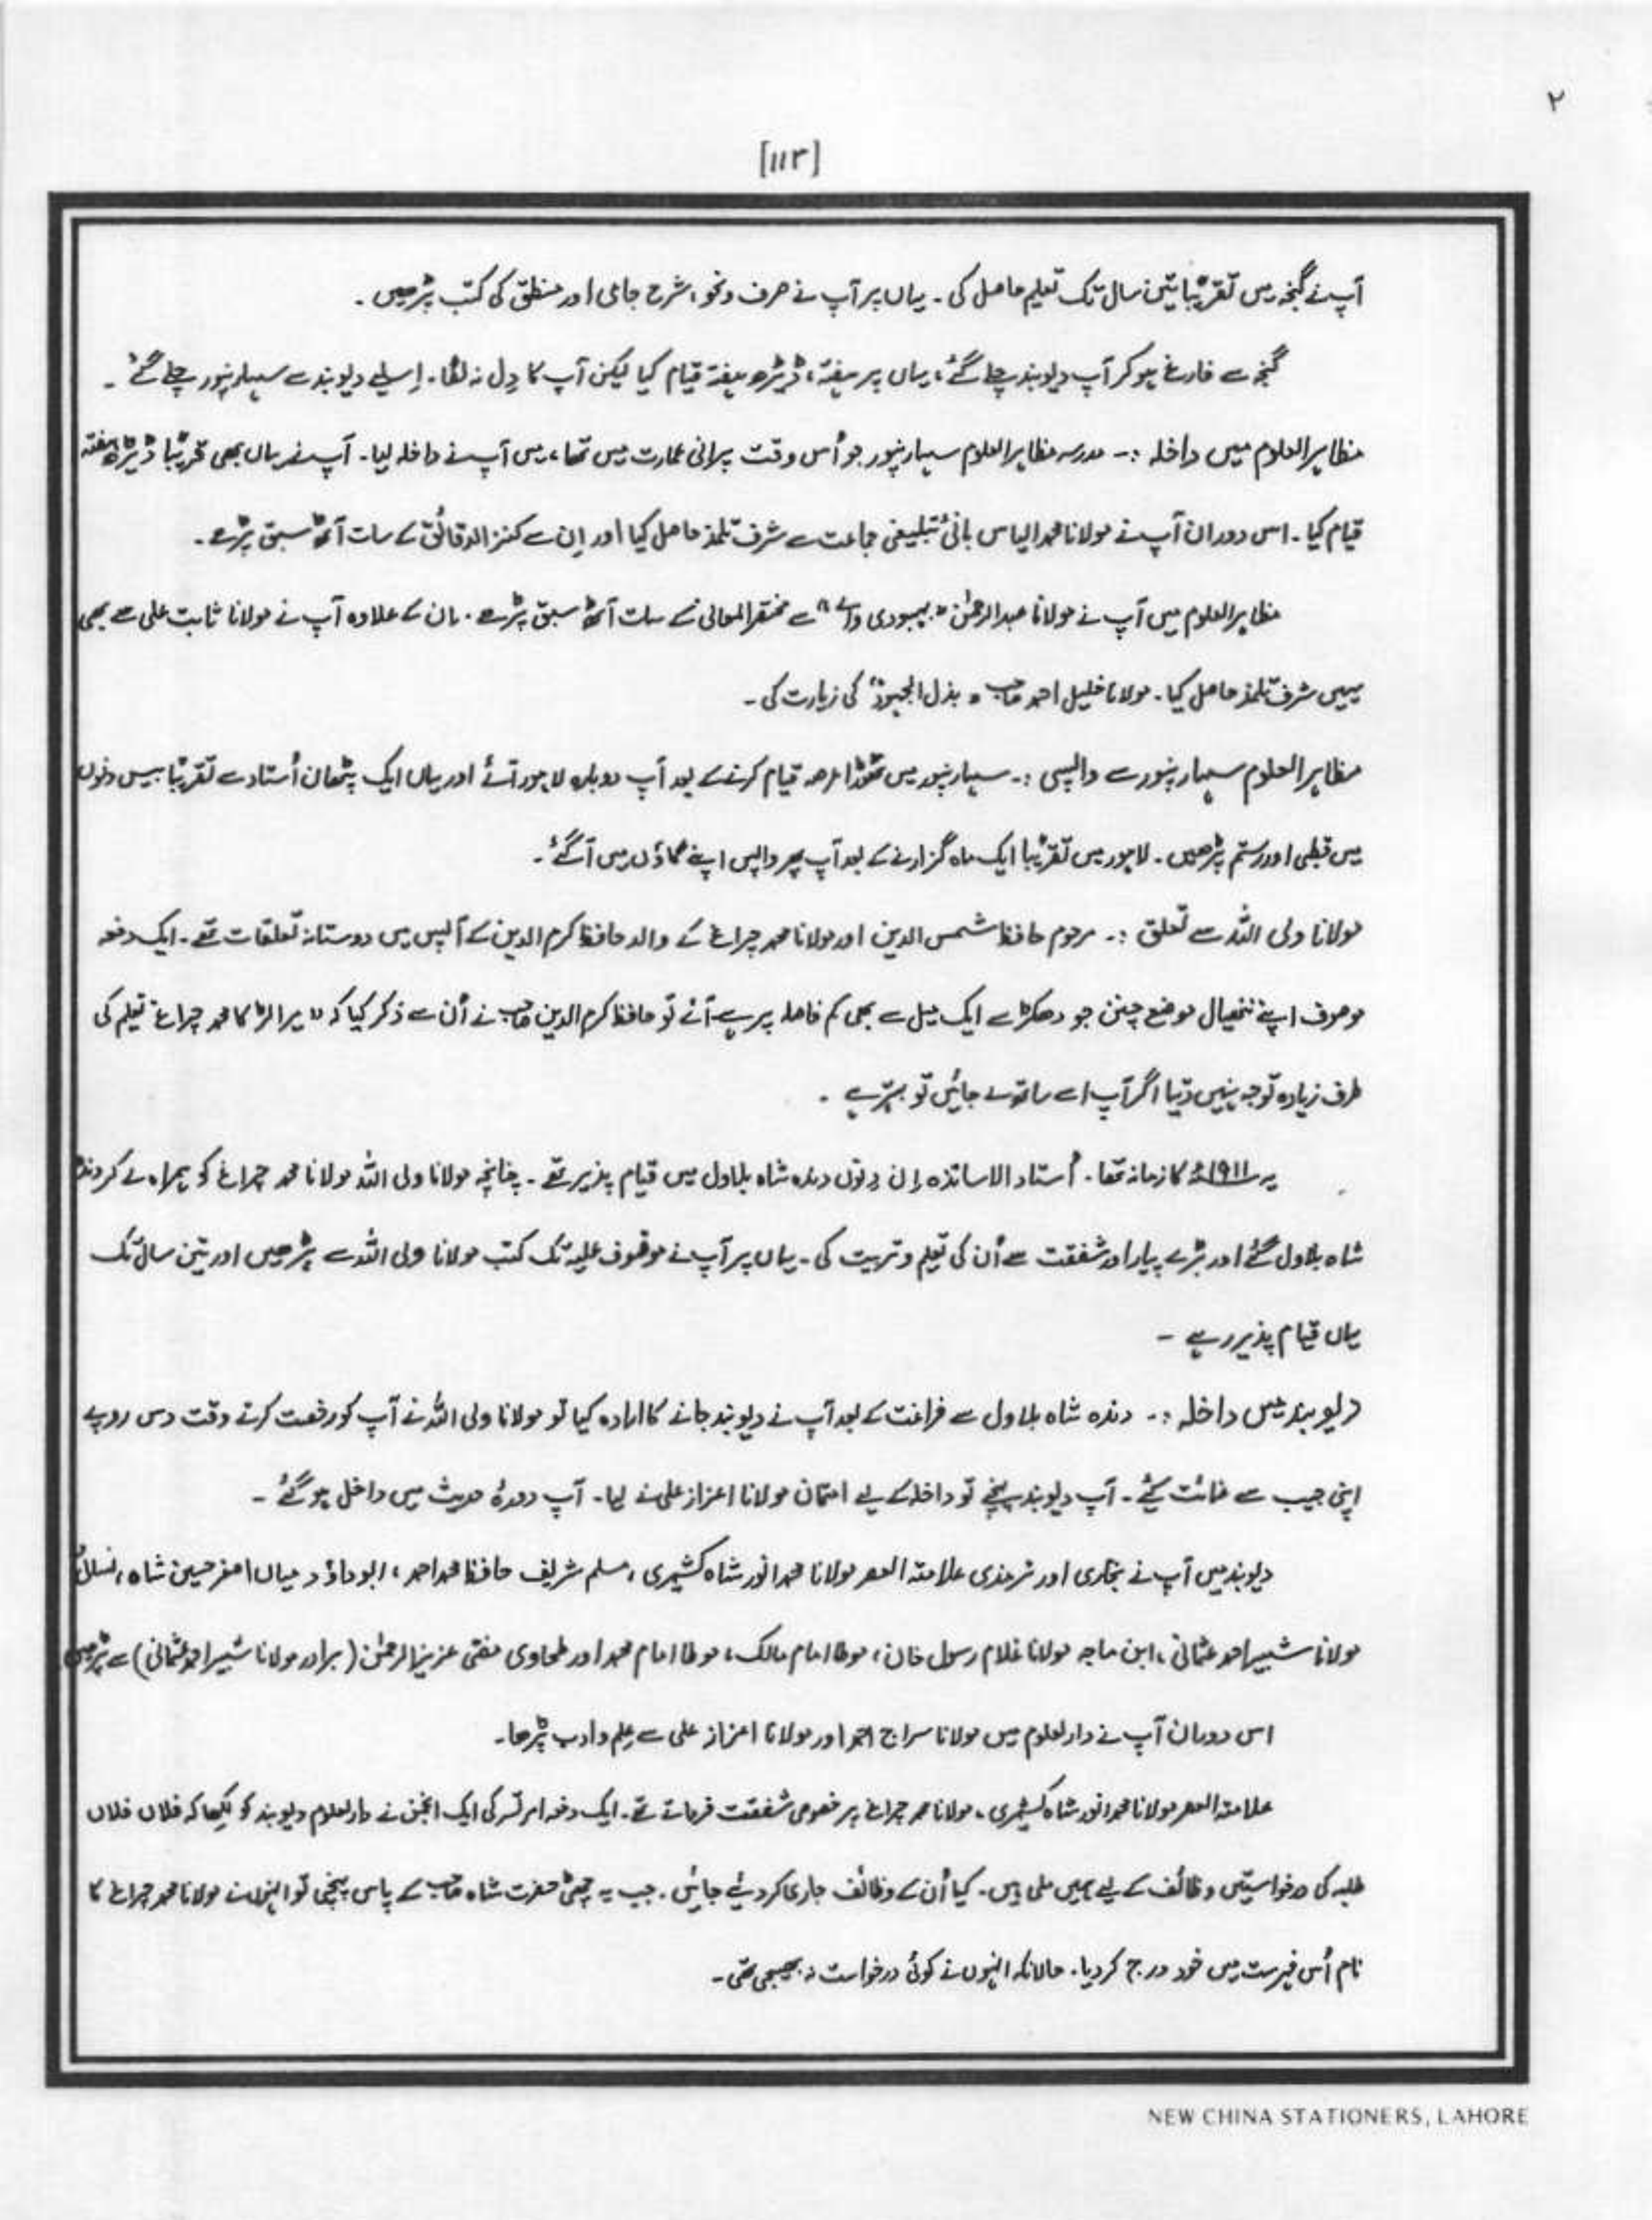 ۲
[۱۱۳]
آپ نے گنجہ میں تقریباً تین سال تک تعلیم حاصل کی ۔ یہاں پر آپ نے صرف و نحو ، شرح جامی اور منطق کی کتب پڑھیں ۔
گنجہ سے فارغ ہو کر آپ دیوبند چلے گئے ، یہاں پر ہفتہ ، ڈیڑھ ہفتہ قیام کیا لیکن آپ کا دِل نہ لگا ۔ اِسلیے دیوبند سے سہارنپور چلے گئے ۔
مظاہر العلوم میں داخلہ :۔ مدرسہ مظاہر العلوم سہارنپور جو اُس وقت پرانی عمارت میں تھا ، میں آپ نے داخلہ لیا ۔ آپ نے یہاں بھی تقریباً ڈیڑھ ہفتہ
قیام کیا ۔ اس دوران آپ نے مولانا محمد الیاس بانئ تبلیغی جماعت سے شرف تلمذ حاصل کیا اور اِن سے کنز الدقائق کے سات آٹھ سبق پڑھے ۔
مظاہر العلوم میں آپ نے مولانا عبدالرحمٰن " بہبودی والے " سے مختصر المعانی کے سات آٹھ سبق پڑھے ۔ ان کے علاوہ آپ نے مولانا ثابت علی سے بھی
یہیں شرف تلمذ حاصل کیا ۔ مولانا خلیل احمد صاحب " بذل المجہود " کی زیارت کی ۔
مظاہر العلوم سہارنپور سے واپسی :۔ سہارنپور میں تھوڑا عرصہ قیام کرنے کے بعد آپ دوبارہ لاہور آئے اور یہاں ایک پٹھان اُستاد سے تقریباً بیس دنوں
میں قطبی اور رستم پڑھیں ۔ لاہور میں تقریباً ایک ماہ گزارنے کے بعد آپ پھر واپس اپنے گاؤں میں آ گئے ۔
مولانا ولی اللہ سے تعلق :۔ مرحوم حافظ شمس الدین اور مولانا محمد چراغ کے والد حافظ کرم الدین کے آپس میں دوستانہ تعلقات تھے ۔ ایک دفعہ
موصوف اپنے ننھیال موضع چنن جو دھکڑ سے ایک میل سے بھی کم فاصلہ پر ہے آئے تو حافظ کرم الدین صاحب نے اُن سے ذکر کیا کہ " میرا لڑکا محمد چراغ تعلیم کی
طرف زیادہ توجہ نہیں دیتا اگر آپ اسے ساتھ لے جائیں تو بہتر ہے ۔
یہ ۱۹۱۱ء کا زمانہ تھا ۔ اُستاد الاساتذہ اِن دِنوں دندہ شاہ بلاول میں قیام پذیر تھے ۔ چنانچہ مولانا ولی اللہ مولانا محمد چراغ کو ہمراہ لے کر دندہ
شاہ بلاول گئے اور بڑے پیار اور شفقت سے اُن کی تعلیم و تربیت کی ۔ یہاں پر آپ نے موقوف علیہ تک کتب مولانا ولی اللہ سے پڑھیں اور تین سال تک
یہاں قیام پذیر رہے ۔
دیوبند میں داخلہ :۔ دندہ شاہ بلاول سے فراغت کے بعد آپ نے دیوبند جانے کا ارادہ کیا تو مولانا ولی اللہ نے آپ کو رخصت کرتے وقت دس روپے
اپنی جیب سے عنائت کیے ۔ آپ دیوبند پہنچے تو داخلہ کے لیے امتحان مولانا اعزاز علی نے لیا ۔ آپ دورۂ حدیث میں داخل ہو گئے ۔
دیوبند میں آپ نے بخاری اور ترمذی علامتہ العصر مولانا محمد انور شاہ کشمیری ، مسلم شریف حافظ محمد احمد ، ابو داؤد میاں اصغر حسین شاہ ، نسائی
مولانا شبیر احمد عثمانی ، ابن ماجہ مولانا غلام رسول خان ، موطا امام مالک ، موطا امام محمد اور طحاوی مفتی عزیز الرحمٰن ( برادر مولانا شبیر احمد عثمانی ) سے پڑھیں
اس دوران آپ نے دارلعلوم میں مولانا سراج احمد اور مولانا اعزاز علی سے علم و ادب پڑھا ۔
علامتہ العصر مولانا محمد انور شاہ کشمیری ، مولانا محمد چراغ پر خصوصی شفقت فرماتے تھے ۔ ایک دفعہ امرتسر کی ایک انجمن نے دارلعلوم دیوبند کو لکھا کہ فلاں فلاں
طلبہ کی درخواستیں وظائف کے لیے ہمیں ملی ہیں ۔ کیا اُن کے وظائف جاری کر دئیے جائیں ۔ جب یہ چٹھی حضرت شاہ صاحب کے پاس پہنچی تو انہوں نے مولانا محمد چراغ کا
نام اُس فہرست میں خود درج کر دیا ۔ حالانکہ انہوں نے کوئی درخواست نہ بھیجی تھی ۔
NEW CHINA STATIONERS, LAHORE